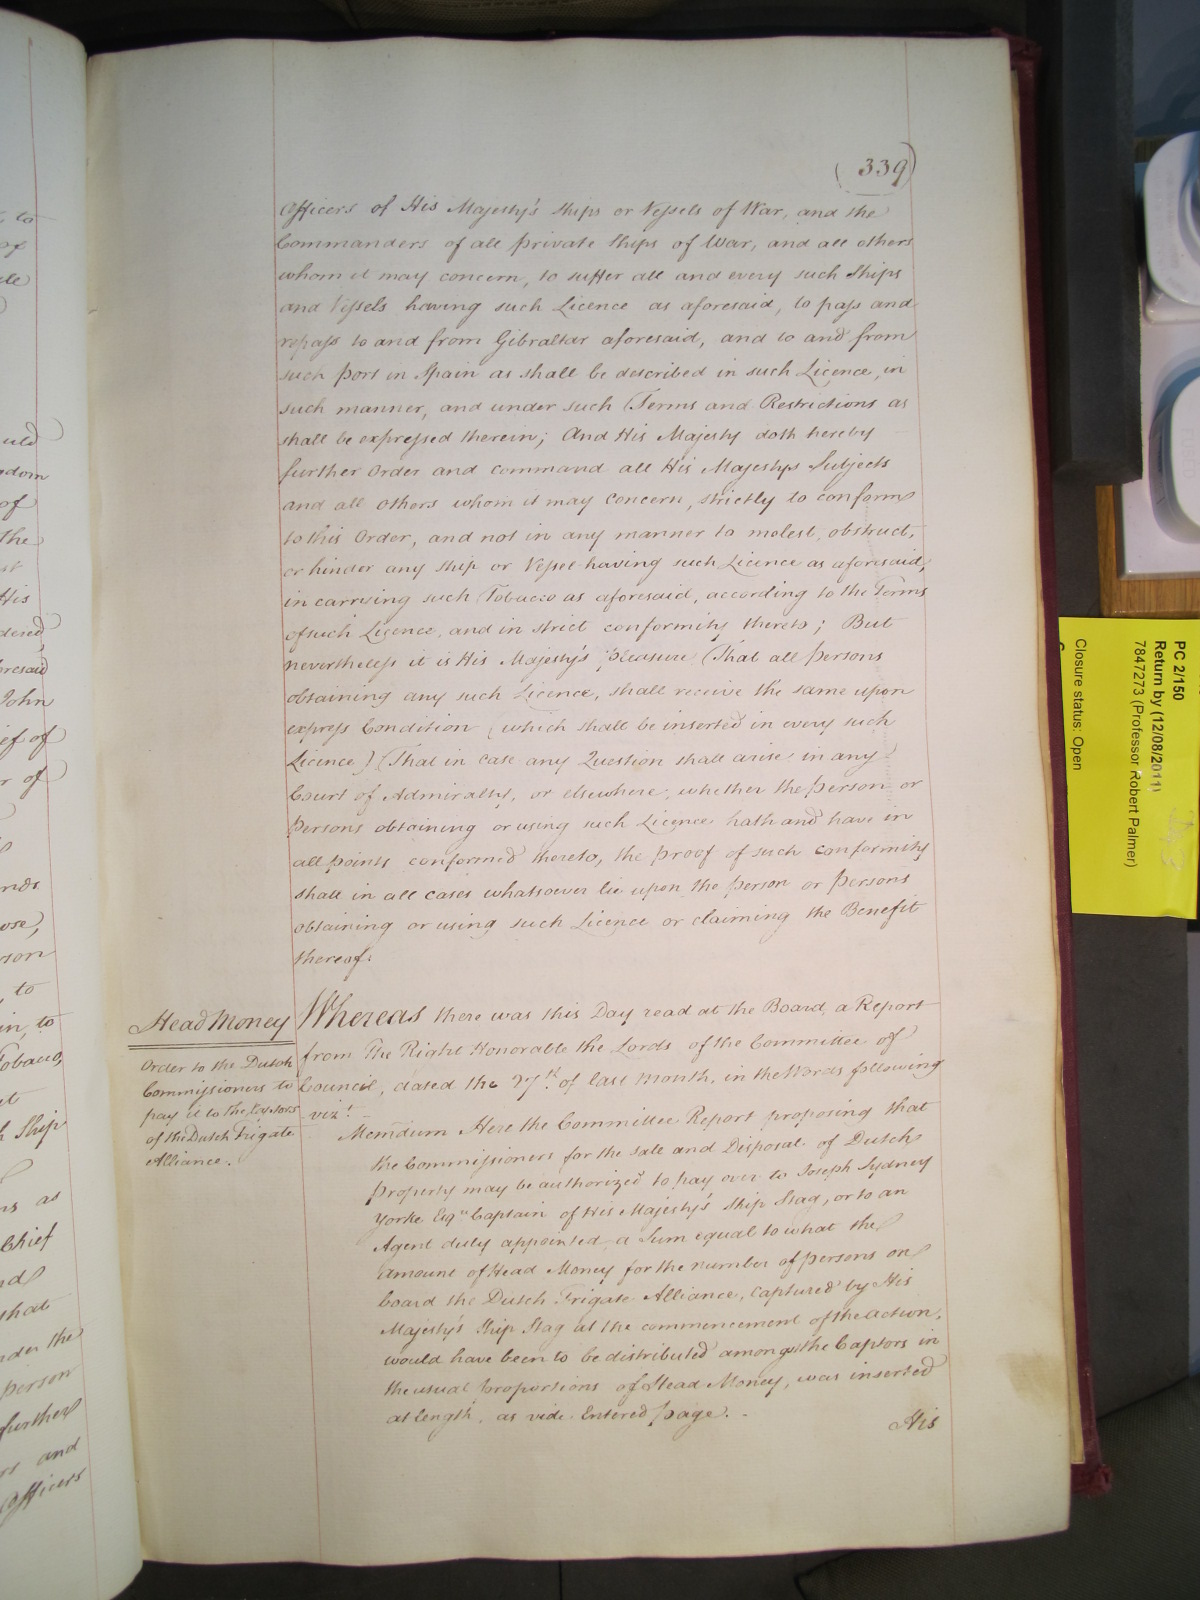 (339)
Officers of His Majesty's Ships or Vessels of War, and the
Commanders of all private Ships of War, and all others
whom it may concern, to suffer all and every such Ships
and Vessels having such Licence as aforesaid, to pass and
repass to and from Gibraltar aforesaid, and to and from
such port in Spain as shall be described in such Licence, in
such manner, and under such Terms and Restrictions as
shall be expressed therein; And His Majesty doth hereby
further Order and command all His Majestys Subjects
and all others whom it may concern, strictly to conform
to this Order, and not in any manner to molest, obstruct,
or hinder any Ship or Vessel having such Licence as aforesaid,
in carrying such Tobacco as aforesaid, according to the Terms
of such Licence, and in strict conformity thereto; But
nevertheless it is His Majesty's pleasure (That all persons
obtaining any such Licence, shall receive the same upon
express Condition (which shall be inserted in every such
Licence) That in case any Question shall arise in any
Court of Admiralty, or elsewhere, whether the person or
persons obtaining or using such Licence hath and have in
all points conformed thereto, the proof of such conformity
shall in all cases whatsoever lie upon the person or persons
obtaining or using such Licence or claiming the Benefit
thereof.
Head Money
Order to the Dutch
Commissioners to
pay it to the Captors
of the Dutch Frigate
Alliance.
Whereas there was this Day read at the Board, a Report
from The Right Honorable the Lords of the Committee of
Council, dated the 27th of last Month, in the Words following
vizt
Memdum Here the Committee Report proposing that
the Commissioners for the Sale and Disposal of Dutch
property may be authorized to pay over to Joseph Sydney
Yorke Esqr Captain of His Majesty's Ship Stag, or to an
Agent duly appointed, a Sum equal to what the
amount of Head Money for the number of persons on
board the Dutch Frigate Alliance, captured by His
Majesty's Ship Stag at the commencement of the action,
would have been to be distributed amongst the Captors in
the usual proportions of Head Money, was inserted
at length, as vide Entered page.
His
to
uld
edom
of
the
His
dered
oresaid
John
ief of
r of
nds
ose,
rson
, to
in, to
Tobacco,
h Ship
ns as
Chief
nd
that
nder the
person
further
rs and
Officers
PC 2/150
Return by (12/08/2011)
7847273 (Professor Robert Palmer)
Closure status: Open